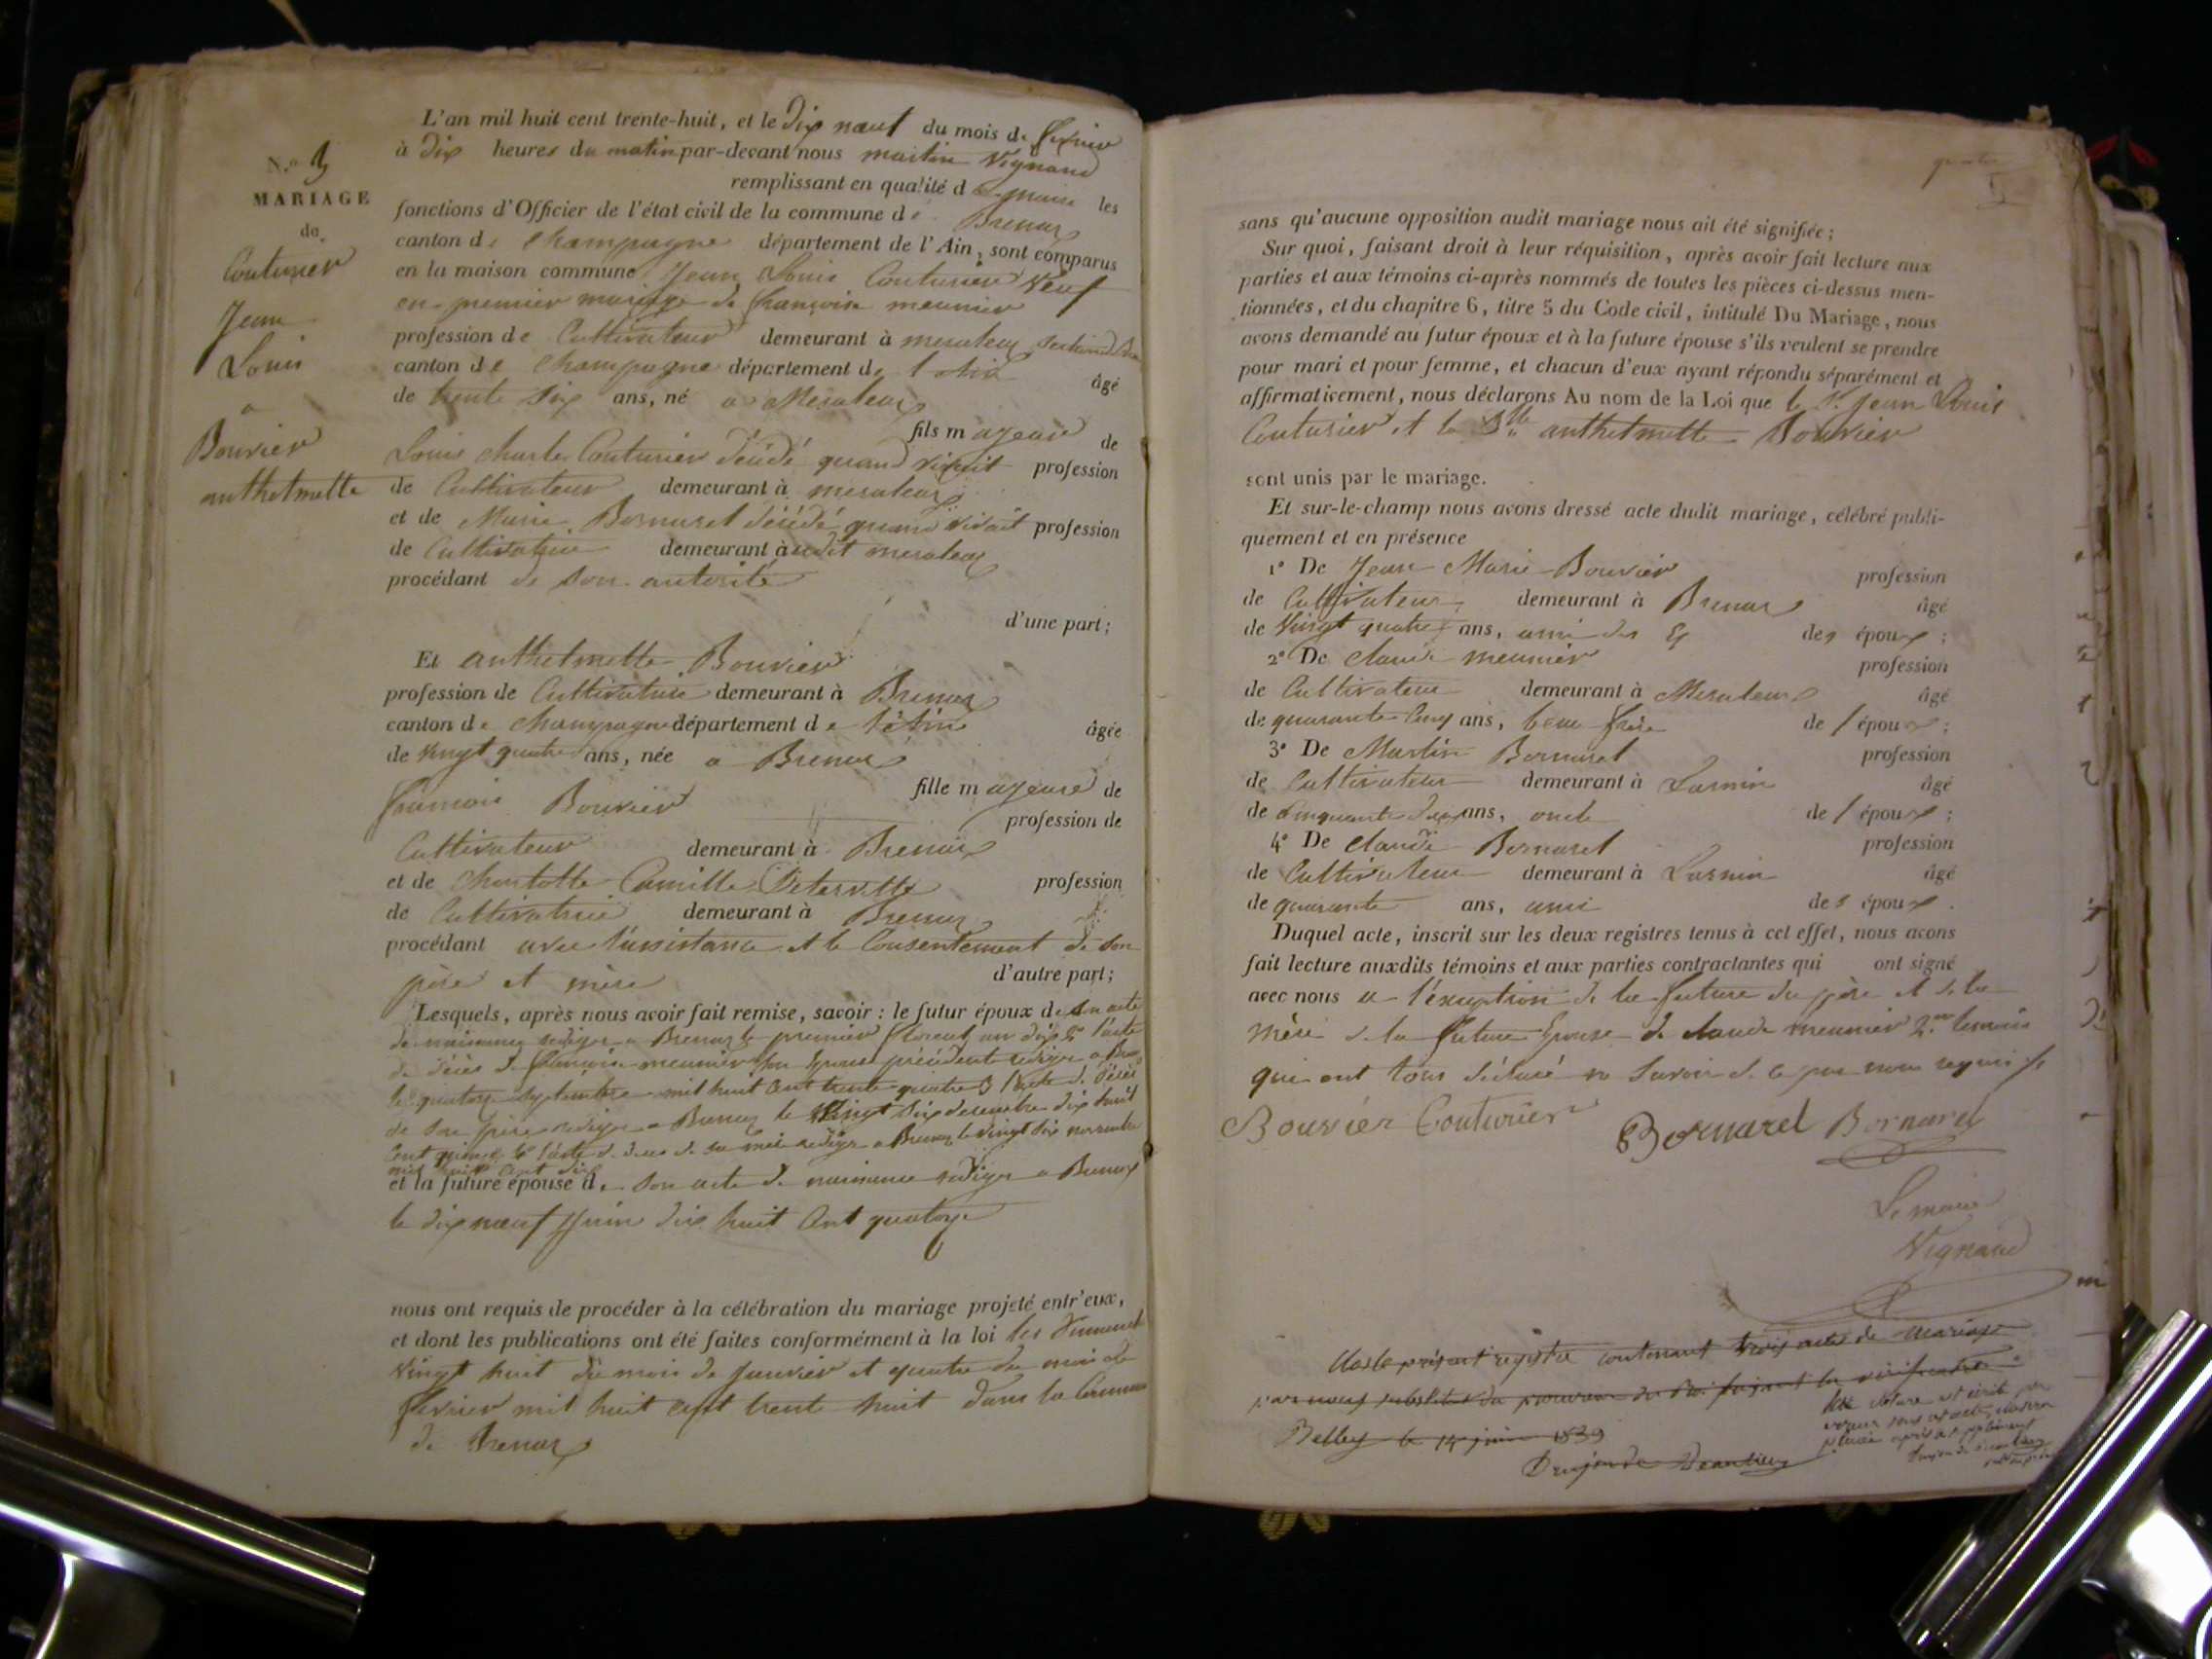 L'an mil huit cent trente-huit, et le dix neuf du mois de fevrier
à dix heures du matin par-devant nous martin Vignand
remplissant en qualité de maire les
fonctions d'Officier de l'état civil de la commune de Brenaz
canton de Champagne département de l'Ain, sont comparus
en la maison commune Jean Louis Couturier Veuf
en premier mariage de françoise meunier
profession de Cultivateur demeurant à meraleaz section de
canton de Champagne département de l'Ain âgé
de trente six ans, né a Meraleaz
fils majeur de
Louis Charle Couturier décédé quand vivait profession
de Cultivateur demeurant à meraleaz
et de Marie Bornarel décédé quand vivait profession
de Cultivatrice demeurant audit meraleaz
procédant de son autorité
d'une part;
Et anthelmette Bouvier
profession de Cultivatrice demeurant à Brenaz
canton de Champagne département de l'Ain âgée
de vingt quatre ans, née a Brenaz
fille majeure de
francois Bouvier
profession de
Cultivateur demeurant à Brenaz
et de Charlotte Camille profession
de Cultivatrice demeurant à Brenaz
procédant avec l'assistance et le Consentement de son
père et mère d'autre part;
Lesquels, après nous avoir fait remise, savoir : le futur époux de son acte
de naissance rediger a Brenaz le premier floreal an dix 2° l'acte
de décès de francoise meunier son Epouse précédente rediger a
le quatorze septembre mil huit cent trente quatre 3 l'acte de décès
de son père rediger a Brenaz le Vingt six decembre dix huit
Cent quinze 4° l'acte de deces de sa mere rediger a Brenaz le vingt six novembre
mil huit Cent dix
et la future épouse de son acte de naissance rediger a Brenaz
le dix neuf Juin dix huit Cent quatorze
nous ont requis de procéder à la célébration du mariage projeté entr'eux,
et dont les publications ont été faites conformément à la loi les dimanche
vingt huit du mois de Janvier et quatre du mois de
fevrier mil huit cent trente huit dans la Commune
de Brenaz
N.° 3
MARIAGE
de
Couturier
Jean
Louis
a
Bouvier
anthelmette
sans qu'aucune opposition audit mariage nous ait été signifiée;
Sur quoi, faisant droit à leur réquisition, après avoir fait lecture aux
parties et aux témoins ci-après nommés de toutes les pièces ci-dessus men-
tionnées, et du chapitre 6, titre 5 du Code civil, intitulé Du Mariage, nous
avons demandé au futur époux et à la future épouse s'ils veulent se prendre
pour mari et pour femme, et chacun d'eux ayant répondu séparément et
affirmativement, nous déclarons Au nom de la Loi que le S.r Jean Louis
Couturier et la Dlle anthelmette Bouvier
sont unis par le mariage.
Et sur-le-champ nous avons dressé acte dudit mariage, célébré publi-
quement et en présence
1° De Jean Marie Bouvier profession
de Cultivateur demeurant à Brenaz âgé
de Vingt quatre ans, ami des époux;
2° De Claude meunier profession
de Cultivateur demeurant à Meraleaz âgé
de quarante Cinq ans, beau frère de l'époux;
3° De Martin Bornarel profession
de Cultivateur demeurant à âgé
de Cinquante deux ans, oncle de l'époux;
4° De Claude Bornarel profession
de Cultivateur demeurant à âgé
de quarante ans, ami des époux.
Duquel acte, inscrit sur les deux registres tenus à cet effet, nous avons
fait lecture auxdits témoins et aux parties contractantes qui ont signé
avec nous a l'exception de la future du père et de la
mère de la future Epouse de Claude meunier 2me temoin
qui ont tous déclaré ne savoir de ce par nous requis
Bouvier Couturier Bornarel Bornarel
Le maire
Vignand
Clos le présent registre contenant trois actes de mariage
par nous substitut du procureur du Roi faisant la vérification
Belley le 14 juin 1839